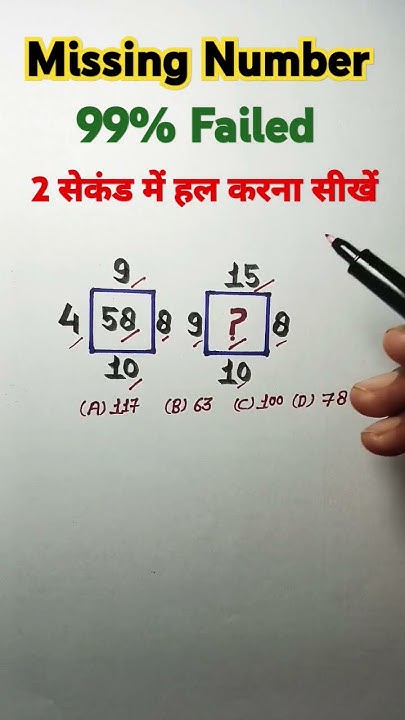 Missing Number
99% Failed
2 सेकंड में हल करना सीखें
9 15
4 58 8 9 ? 8
10 10
(A) 117 (B) 63 (C) 100 (D) 78